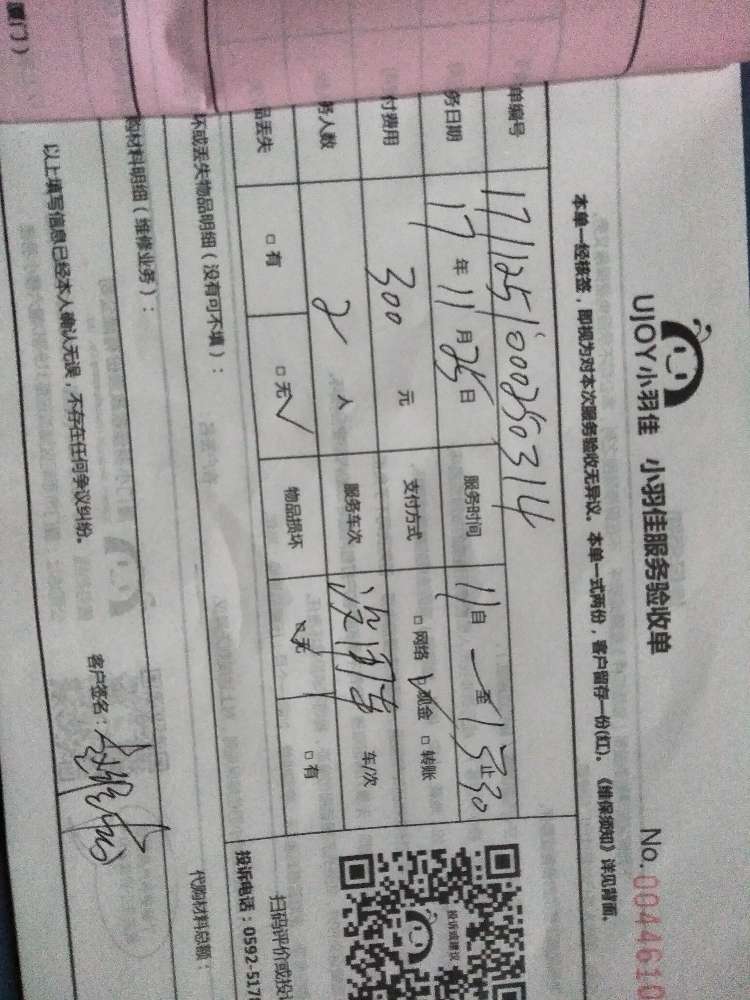 厦门）
UJOY小羽佳 小羽佳服务验收单
No.0044610
本单一经核签，即视为对本次服务验收无异议。本单一式两份，客户留存一份(红)。《维保须知》详见背面。
单编号 1711251000250314
务日期 17年11月25日 服务时间 11自 至15止30
付费用 300元 支付方式 □网络 ☑现金 □转账
务人数 2人 服务车次 车/次
品丢失 □有 □无√ 物品损坏 ☑无 □有
坏或丢失物品明细（没有可不填）：
投诉或建议
扫码评价或投诉
投诉电话：0592-517
购材料明细（维修业务）：
代购材料总额：
以上填写信息已经本人确认无误，不存在任何争议纠纷。
客户签名：